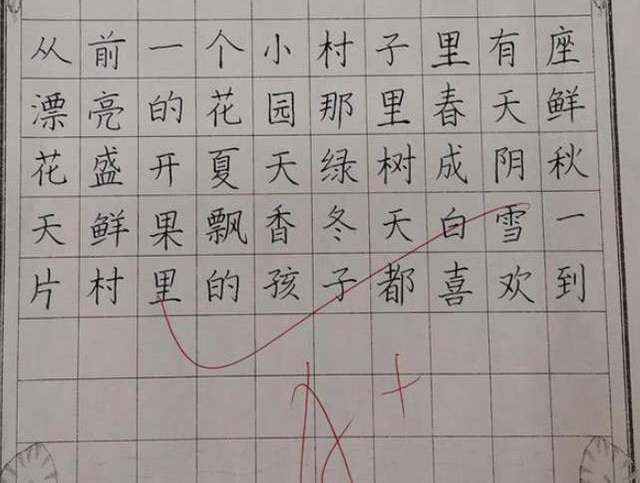 从前一个小村子里有座
漂亮的花园那里春天鲜
花盛开夏天绿树成阴秋
天鲜果飘香冬天白雪一
片村里的孩子都喜欢到
A+